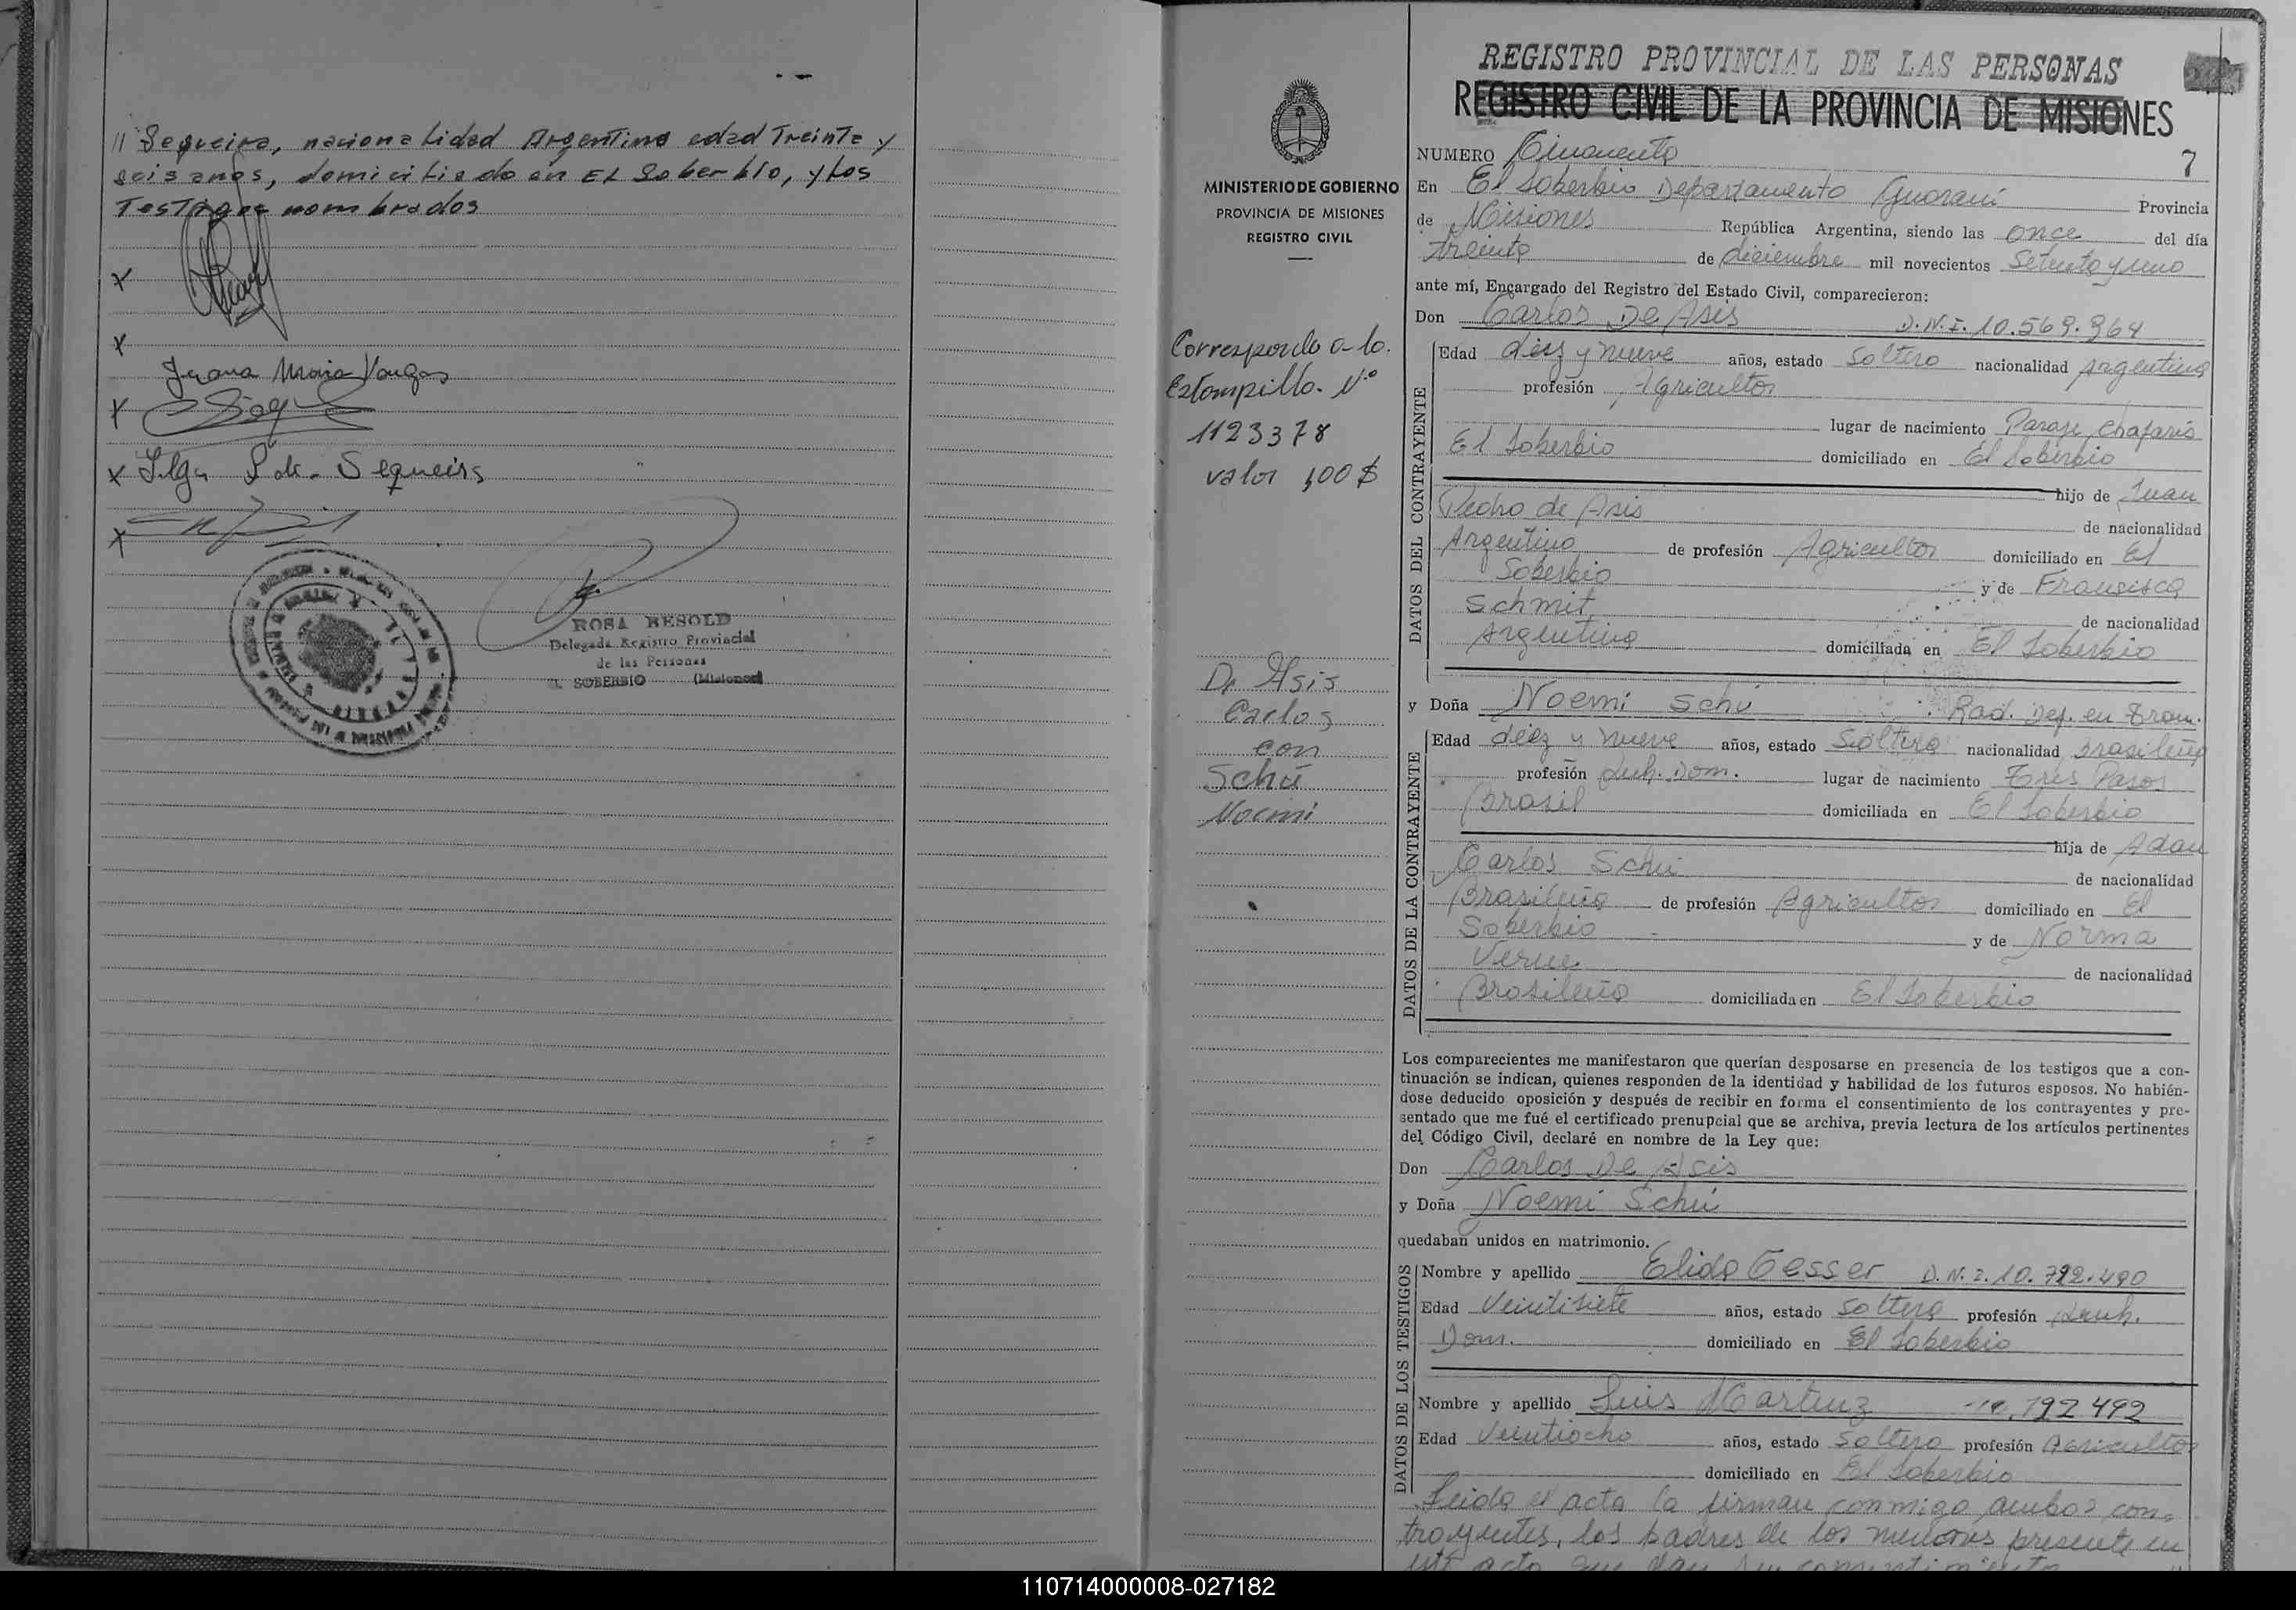 // Sequeira, nacionalidad Argentina edad Treinta y
seis años, domiciliado en El Soberbio, y los
Testigos nombrados
x
x
Juana Maria Vargas
x
x Ilga S de Sequeira
x
ROSA BESOLD
Delegada Registro Provincial
de las Personas
EL SOBERBIO (Misiones)
MINISTERIO DE GOBIERNO
PROVINCIA DE MISIONES
REGISTRO CIVIL
Corresponde a la
Estampilla Nº
1123378
valor 1,00 $
De Asis
Carlos
con
Schú
Noemi
REGISTRO PROVINCIAL DE LAS PERSONAS
REGISTRO CIVIL DE LA PROVINCIA DE MISIONES
NUMERO Cincuenta 7
En El Soberbio Departamento Guaraní Provincia
de Misiones República Argentina, siendo las once del día
treinta de diciembre mil novecientos Setenta y uno
ante mí, Encargado del Registro del Estado Civil, comparecieron:
Don Carlos De Asis D.N.I. 10.569.964
DATOS DEL CONTRAYENTE
Edad diez y nueve años, estado Soltero nacionalidad Argentina
profesión Agricultor
lugar de nacimiento Paraje Chafaris
El Soberbio domiciliado en El Soberbio
hijo de Juan
Pedro de Asis de nacionalidad
Argentino de profesión Agricultor domiciliado en El
Soberbio y de Francisca
Schmit de nacionalidad
Argentina domiciliada en El Soberbio
y Doña Noemi Schú Rad. Def. en Tram.
DATOS DE LA CONTRAYENTE
Edad diez y nueve años, estado Soltera nacionalidad Brasileña
profesión Quh. Dom. lugar de nacimiento Tres Pasos
Brasil domiciliada en El Soberbio
hija de Adan
Carlos Schú de nacionalidad
Brasileño de profesión Agricultor domiciliado en El
Soberbio y de Norma
de nacionalidad
Brasileña domiciliada en El Soberbio
Los comparecientes me manifestaron que querían desposarse en presencia de los testigos que a con-
tinuación se indican, quienes responden de la identidad y habilidad de los futuros esposos. No habién-
dose deducido oposición y después de recibir en forma el consentimiento de los contrayentes y pre-
sentado que me fué el certificado prenupcial que se archiva, previa lectura de los artículos pertinentes
del Código Civil, declaré en nombre de la Ley que:
Don Carlos De Asis
y Doña Noemi Schú
quedaban unidos en matrimonio.
DATOS DE LOS TESTIGOS
Nombre y apellido Elida Tesser D.N.I. 10.792.490
Edad Veintisiete años, estado Soltera profesión Quh.
Dom. domiciliado en El Soberbio
Nombre y apellido Luis Martinz 10.792.492
Edad Veintiocho años, estado Soltero profesión Agricultor
domiciliado en El Soberbio
Leida el acta la firman conmigo ambos con-
trayentes, los padres de los menores presente en
este acto que dan su consentimiento
110714000008-027182